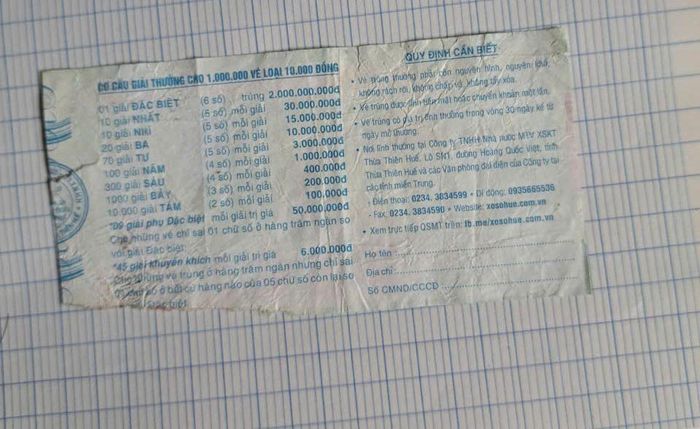 CƠ CẤU GIẢI THƯỞNG CHO 1.000.000 VÉ LOẠI 10.000 ĐỒNG
01 giải ĐẶC BIỆT (6 số) trúng 2.000.000.000đ
10 giải NHẤT (5 số) mỗi giải 30.000.000đ
10 giải NHÌ (5 số) mỗi giải 15.000.000đ
20 giải BA (5 số) mỗi giải 10.000.000đ
70 giải TƯ (5 số) mỗi giải 3.000.000đ
100 giải NĂM (4 số) mỗi giải 1.000.000đ
300 giải SÁU (4 số) mỗi giải 400.000đ
1000 giải BẢY (3 số) mỗi giải 200.000đ
10.000 giải TÁM (2 số) mỗi giải 100.000đ
*09 giải phụ Đặc biệt mỗi giải trị giá 50.000.000đ
Cho những vé chỉ sai 01 chữ số ở hàng trăm ngàn so
với giải Đặc biệt.
*45 giải khuyến khích mỗi giải trị giá 6.000.000đ
Cho những vé trúng ở hàng trăm ngàn nhưng chỉ sai
01 chữ số ở bất cứ hàng nào của 05 chữ số còn lại so
Đặc biệt
QUY ĐỊNH CẦN BIẾT
• Vé trúng thưởng phải còn nguyên hình, nguyên khổ,
không rách rời, không chắp vá, không tẩy xóa.
• Vé trúng được lĩnh tiền mặt hoặc chuyển khoản một lần.
• Vé trúng có giá trị lĩnh thưởng trong vòng 30 ngày kể từ
ngày mở thưởng.
• Nơi lĩnh thưởng tại Công ty TNHH Nhà nước MTV XSKT
Thừa Thiên Huế, Lô SN1, đường Hoàng Quốc Việt, tỉnh
Thừa Thiên Huế và các Văn phòng đại diện của Công ty tại
các tỉnh miền Trung.
- Điện thoại: 0234. 3834599 • Di động: 0935665536
- Fax: 0234. 3834590 • Website: xosohue.com.vn
• Xem trực tiếp QSMT trên: fb.me/xosohue.com.vn
Họ tên :
Địa chỉ :
Số CMND/CCCD :